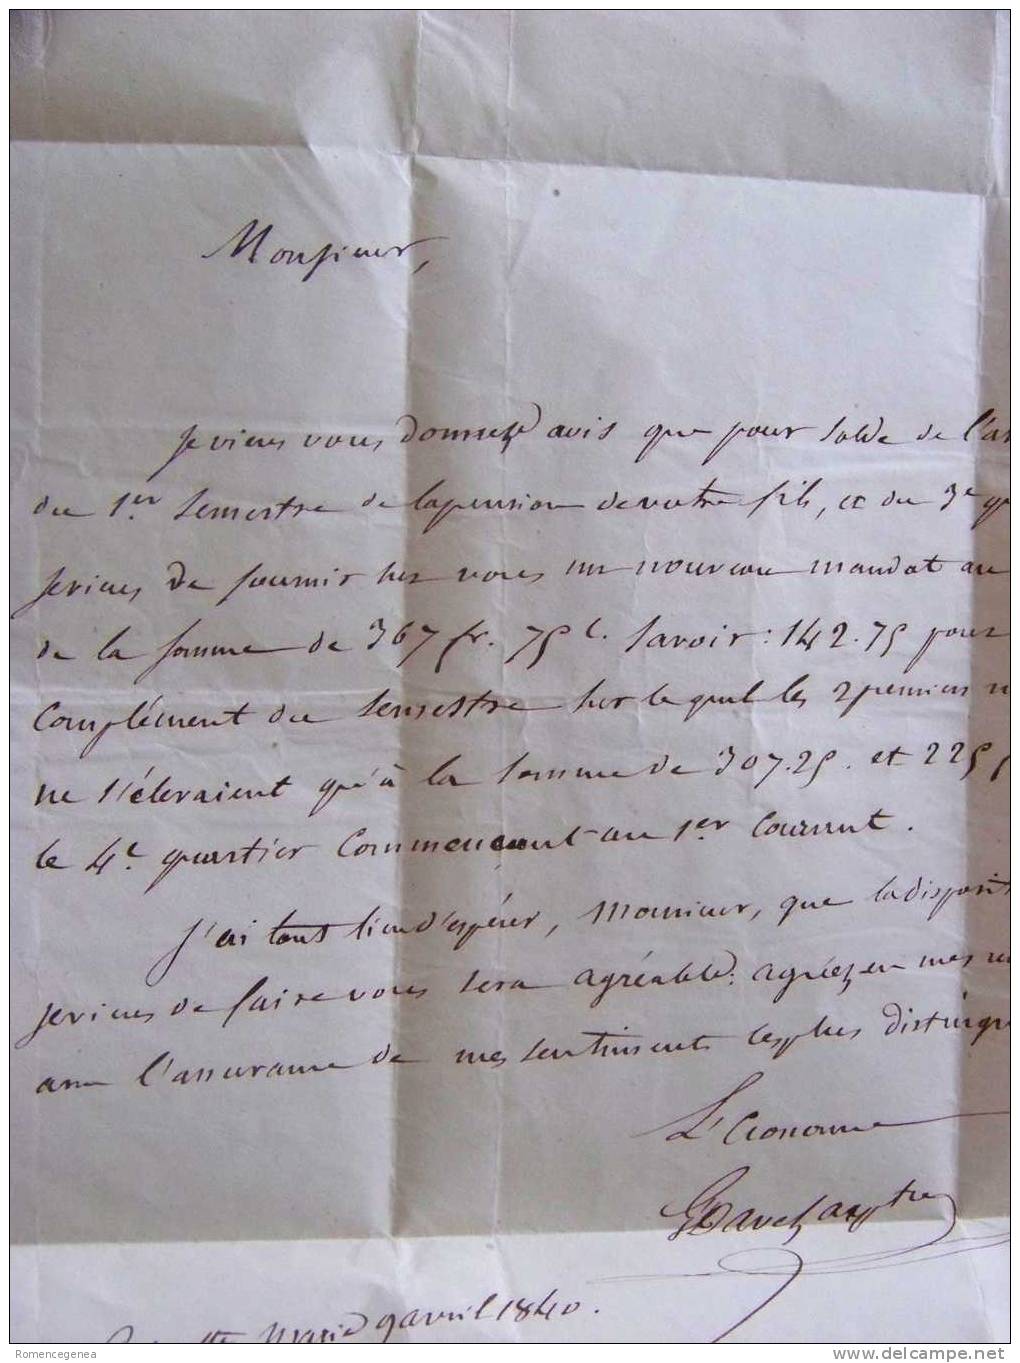 Monsieur,
Je viens vous donner avis que pour solde de l'an
du 1er semestre de la pension de votre fils, et du 3e qu
je viens de fournir sur vous un nouveau mandat au
de la somme de 367 fr. 75 c. savoir : 142.75 pour
complément du semestre sur lequel les 2 premiers m
ne s'éleraient qu'à la somme de 307.25. et 225
le 4e quartier commençant au 1er courant.
J'ai tout lieu d'espérer, Monsieur, que la disposit
je viens de faire vous sera agréable : agréez en mes
l'assurance de mes sentiments les plus distingu
L'Econome
Marie 9 avril 1840.
Romencegenea
www.delcampe.net